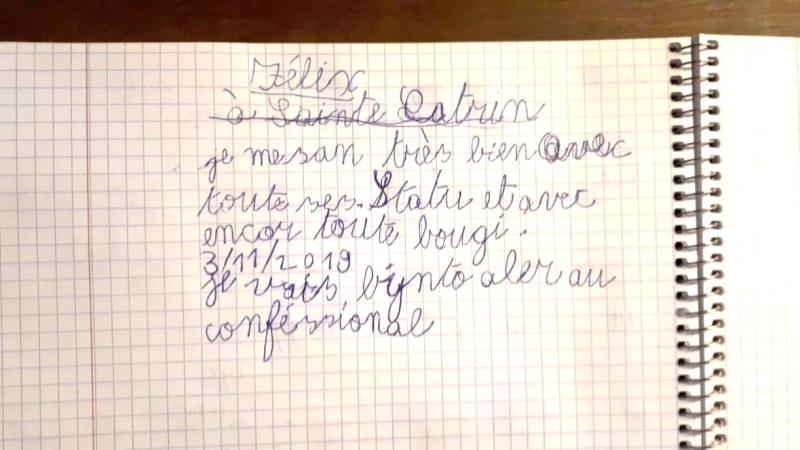 Félix
à Sainte Catrin
je me san très bien avec
toute ses Statu et avec
encor toute bougi.
3/11/2019
je vais bynto aler au
conféssional